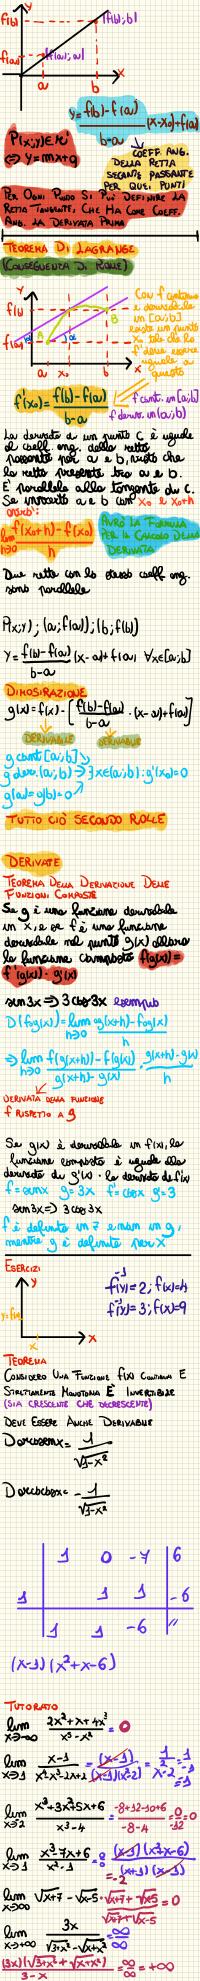 y
f(b)
(f(b); b)
f(a)
(f(a); a)
a
b
x
y = f(b)-f(a)/b-a (x-x₀)+f(a)
P(x;y)∈r
⇔ y=mx+q
COEFF. ANG.
DELLA RETTA
SECANTE PASSANTE
PER QUEI PUNTI
PER OGNI PUNTO SI PUÒ DEFINIRE LA
RETTA TANGENTE, CHE HA COME COEFF.
ANG. LA DERIVATA PRIMA
TEOREMA DI LAGRANGE
(CONSEGUENZA DI ROLLE)
y
f(b)
f(a)
A
B
α
a
x₀
b
x
Con f continua
e derivabile
in [a;b]
esiste un punto
x₀ tale che la
f' deve essere
uguale a
questo
f'(x₀) = f(b)-f(a)/b-a
f cont. in [a;b]
f deriv. in (a;b)
La derivata di un punto c è uguale
al coeff. ang. della retta
passante per a e b, visto che
la retta presente tra a e b.
È parallela alla tangente di c.
Se inverto a e b con x₀ e x₀+h
avrò:
lim h→0 f(x₀+h)-f(x₀)/h
AVRÒ LA FORMULA
PER IL CALCOLO DELLA
DERIVATA
Due rette con lo stesso coeff. ang.
sono parallele
P(x;y); (a; f(a)); (b; f(b))
y = f(b)-f(a)/b-a (x-a)+f(a) ∀x∈[a;b]
DIMOSTRAZIONE
g(x) = f(x) - [f(b)-f(a)/b-a · (x-a)+f(a)]
DERIVABILE
DERIVABILE
g cont. [a;b]
g deriv. (a;b) → ∃x∈(a;b): g'(x₀)=0
g(a)=g(b)=0
TUTTO CIÒ SECONDO ROLLE
DERIVATE
TEOREMA DELLA DERIVAZIONE DELLE
FUNZIONI COMPOSTE
Se g è una funzione derivabile
in x, e se f è una funzione
derivabile nel punto g(x) allora
la funzione composta f(g(x)) =
f'(g(x)) · g'(x)
sen3x ⇒ 3cos3x esempio
D(fog(x)) = lim h→0 fog(x+h)-fog(x)/h
⇒ lim h→0 f(g(x+h))-f(g(x))/g(x+h)-g(x) · g(x+h)-g(x)/h
DERIVATA DELLA FUNZIONE
f RISPETTO A g
Se g(x) è derivabile in f(x), la
funzione composta è uguale alla
derivata di g'(x) · la derivata di f(x)
f=senx g=3x f'=cosx g'=3
sen3x ⇒ 3cos3x
f è definita in z e non in g,
mentre g è definita per x
ESERCIZI
y
x
f⁻¹(y)=2; f(x)=4
f⁻¹(y)=3; f(x)=9
TEOREMA
CONSIDERO UNA FUNZIONE f(x) CONTINUA E
STRETTAMENTE MONOTONA È INVERTIBILE
(SIA CRESCENTE CHE DECRESCENTE)
DEVE ESSERE ANCHE DERIVABILE
D arcsenx = 1/√1-x²
D arccosx = - 1/√1-x²
1 0 -7 6
1 1 1 -6
1 1 -6 //
(x-1)(x²+x-6)
TUTORATO
lim x→-∞ 2x²+x+4x³/x⁵-x⁴ = 0
lim x→1 x-1/x²-x-2x+2 = (x-1)/(x-1)(x-2) = 1/x-2 = 1/-1 = -1
lim x→-2 x³+3x²+5x+6/x³-4 = -8+12-10+6/-8-4 = 0/-12 = 0
lim x→1 x³-7x+6/x²-1 = 0/0 = (x-1)(x²+x-6)/(x+1)(x-1) = -2
lim x→∞ √x+7 - √x-5 · √x+7 + √x-5/√x+7 + √x-5 = 0
lim x→+∞ 3x/√3+x² - √x+x² = ∞/∞
(3x)(√3+x² + √x+x²)/3-x = ∞/∞ = +∞